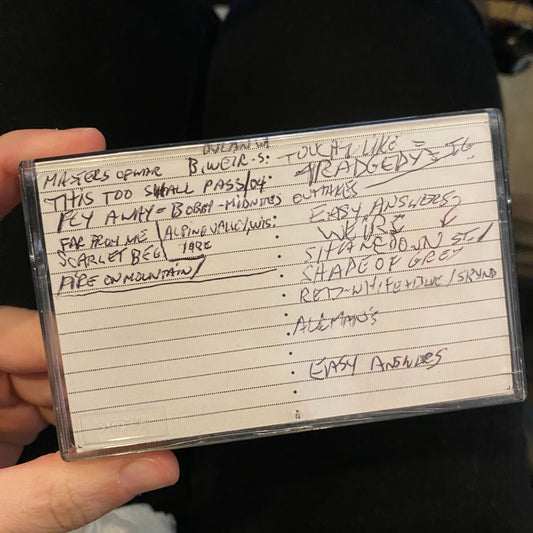 DYLAN W/
MASTERS OF WAR B.WEIR-S:
THIS TOO SHALL PASS/04
FLY AWAY = BOBBY-MIDNITES
FAR FROM ME
SCARLET BEG
ALPINE VALLEY, WIS:
FIRE ON MOUNTAIN/
TOUCH, LIKE =
TRADGEDY'S
OUTTAKES
EASY ANSWERS
WEIRS
SHINEDOWN
SHADE OF GREY
RED-WHITE + BLUE/SKYND
ALLMAN'S
EASY ANSWERS